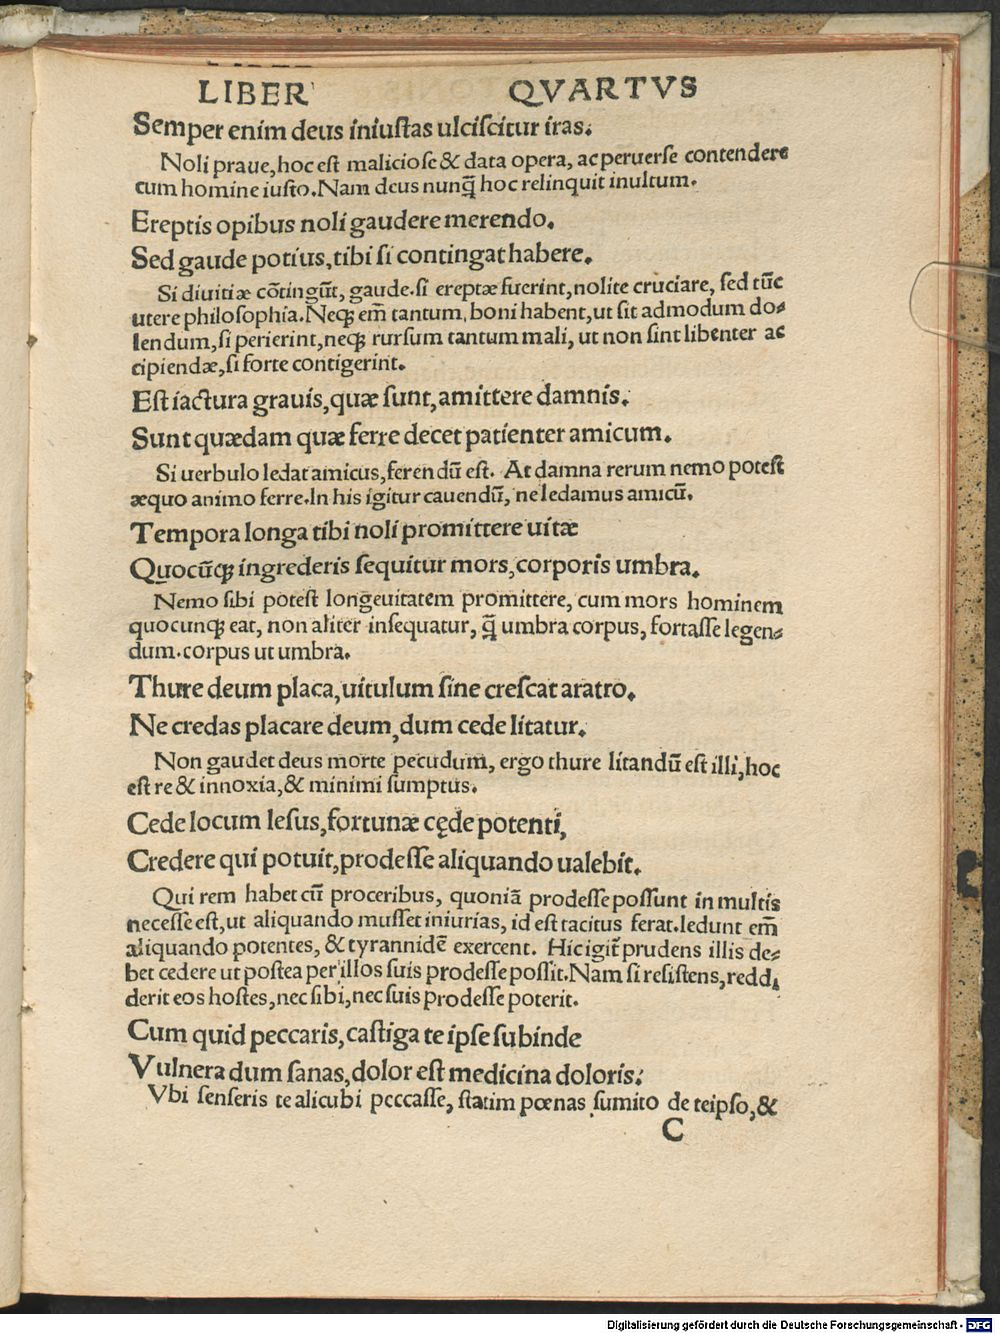 LIBER QVARTVS
Semper enim deus iniustas ulciscitur iras.
Noli praue, hoc est maliciose & data opera, ac peruerse contendere
cum homine iusto. Nam deus nunq̃ hoc relinquit inultum.
Ereptis opibus noli gaudere merendo.
Sed gaude potius, tibi si contingat habere.
Si diuitiæ cõtingũt, gaude. si ereptæ fuerint, nolite cruciare, sed tũc
utere philosophia. Neqꝫ em̃ tantum boni habent, ut sit admodum do⸗
lendum, si perierint, neqꝫ rursum tantum mali, ut non sint libenter ac
cipiendæ, si forte contigerint.
Est iactura grauis, quæ sunt, amittere damnis.
Sunt quædam quæ ferre decet patienter amicum.
Si uerbulo ledat amicus, ferendũ est. At damna rerum nemo potest
æquo animo ferre. In his igitur cauendũ, ne ledamus amicũ.
Tempora longa tibi noli promittere uitæ
Quocũqꝫ ingrederis sequitur mors, corporis umbra.
Nemo sibi potest longeuitatem promittere, cum mors hominem
quocunqꝫ eat, non aliter insequatur, q̃ umbra corpus, fortasse legen⸗
dum. corpus ut umbra.
Thure deum placa, uitulum sine crescat aratro.
Ne credas placare deum, dum cede litatur.
Non gaudet deus morte pecudum, ergo thure litandũ est illi, hoc
est re & innoxia, & minimi sumptus.
Cede locum lesus, fortunæ cęde potenti,
Credere qui potuit, prodesse aliquando ualebit.
Qui rem habet cũ proceribus, quoniã prodesse possunt in multis
necesse est, ut aliquando musset iniurias, id est tacitus ferat. ledunt em̃
aliquando potentes, & tyrannidẽ exercent. Hic igit̃ prudens illis de⸗
bet cedere ut postea per illos suis prodesse possit. Nam si resistens, redd,
derit eos hostes, nec sibi, nec suis prodesse poterit.
Cum quid peccaris, castiga te ipse subinde
Vulnera dum sanas, dolor est medicina doloris.
Vbi senseris te alicubi peccasse, statim pœnas sumito de teipso, &
C
Digitalisierung gefördert durch die Deutsche Forschungsgemeinschaft - DFG